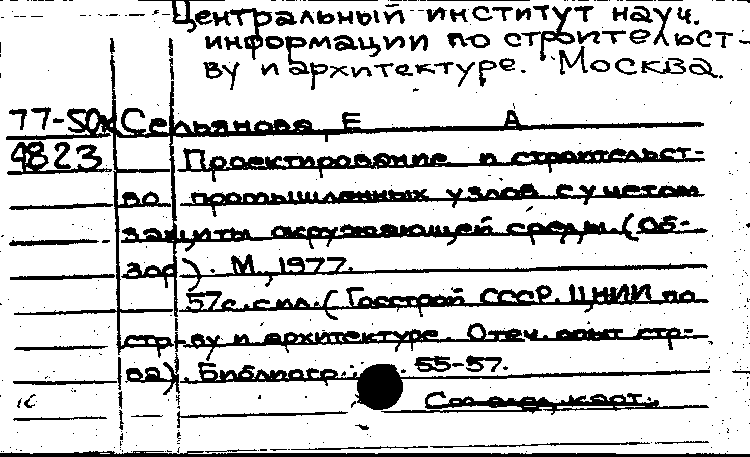 Центральный институт науч.
информации по строительст-
ву и архитектуре. Москва.
77-50к Сельянова, Е А
4823 Проектирование и строительст-
во промышленных узлов с учетом
защиты окружающей среды. (Об-
зор). М., 1977.
57с. с ил. (Госстрой СССР. ЦНИИ по
стр-ву и архитектуре. Отеч. опыт стр-
ва). Библиогр.: 55-57.
карт.